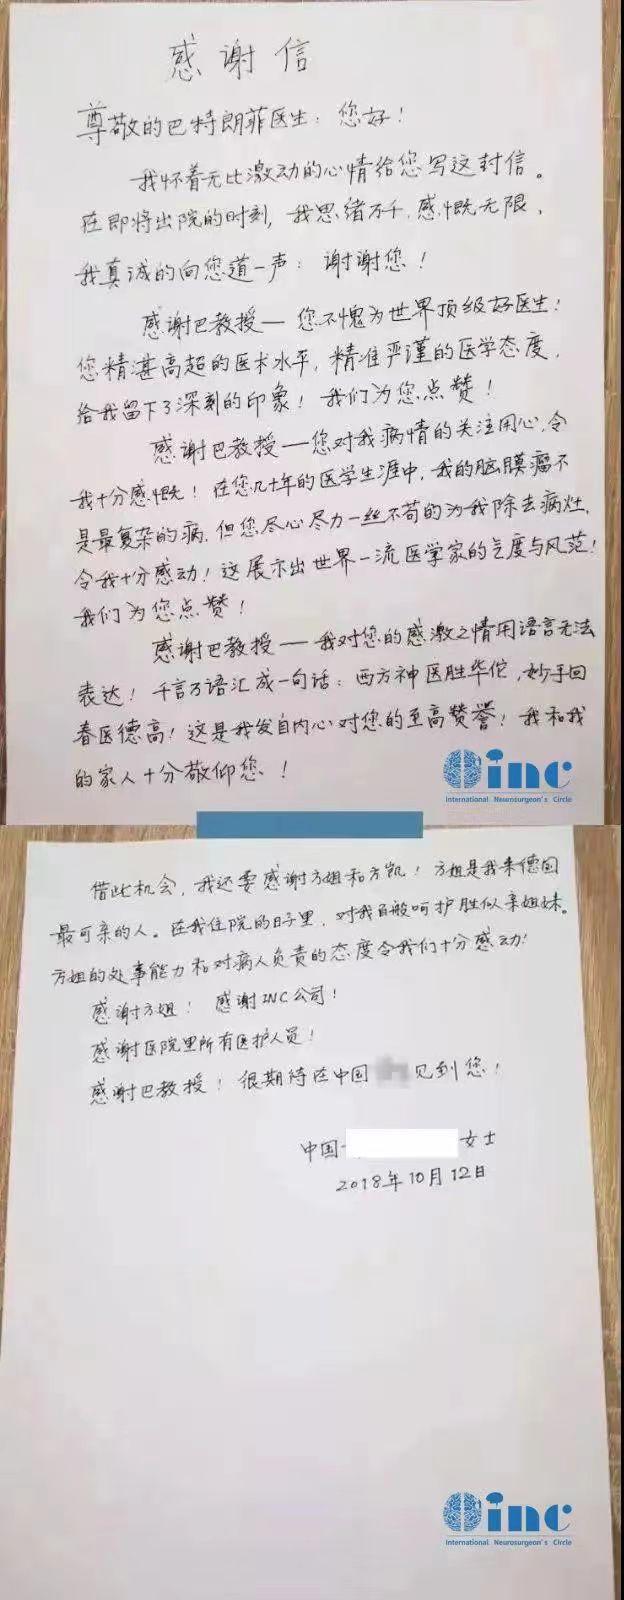 感谢信
尊敬的巴特朗菲医生：您好！
我怀着无比激动的心情给您写这封信。
在即将出院的时刻，我思绪万千，感慨无限，
我真诚的向您道一声：谢谢您！
感谢巴教授——您不愧为世界顶级好医生！
您精湛高超的医术水平，精准严谨的医学态度，
给我留下了深刻的印象！我们为您点赞！
感谢巴教授——您对我病情的关注用心，令
我十分感慨！在您几十年的医学生涯中，我的脑膜瘤不
是最复杂的病，但您尽心尽力一丝不苟的为我除去病灶，
令我十分感动！这展示出世界一流医学家的气度与风范！
我们为您点赞！
感谢巴教授——我对您的感激之情用语言无法
表达！千言万语汇成一句话：西方神医胜华佗，妙手回
春医德高！这是我发自内心对您的至高赞誉！我和我
的家人十分敬仰您！
inc
International Neurosurgeon's Circle
借此机会，我还要感谢方姐和方凯！方姐是我来德国
最可亲的人。在我住院的日子里，对我百般呵护胜似亲姐妹。
方姐的处事能力和对病人负责的态度令我们十分感动！
感谢方姐！感谢INC公司！
感谢医院里所有医护人员！
感谢巴教授！很期待在中国见到您！
中国-女士
2018年10月12日
inc
International Neurosurgeon's Circle